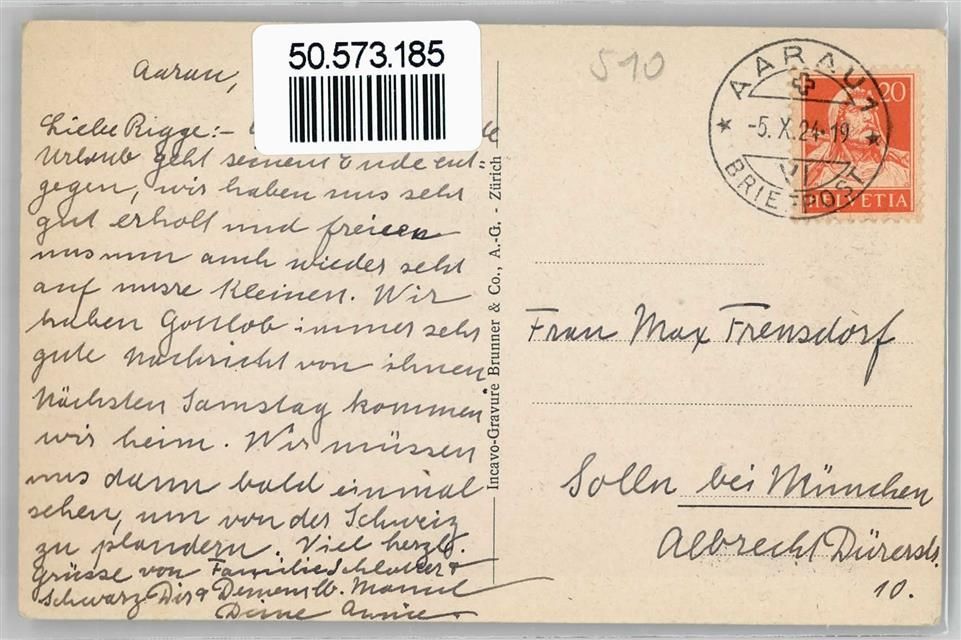 50.573.185
510
Aarau,
Liebe Rigge:-
Urlaub geht seinem Ende ent-
gegen, wir haben uns sehr
gut erholt und freuen
uns nun auch wieder sehr
auf unsre Kleinen. Wir
haben Gottlob immer sehr
gute Nachricht von ihnen
Nächsten Samstag kommen
wir heim. Wir müssen
uns dann bald einmal
sehen, um von der Schweiz
zu plaudern. Viel herzl.
Grüsse von Familie
Schwarz Dir &
Deine
Incavo-Gravure Brunner & Co., A.-G. - Zürich
AARAU 1
-5.X.24-19
BRIEFPOST
20
HELVETIA
Frau Max Frensdorf
Solln bei München
Albrecht Dürerstr.
10.